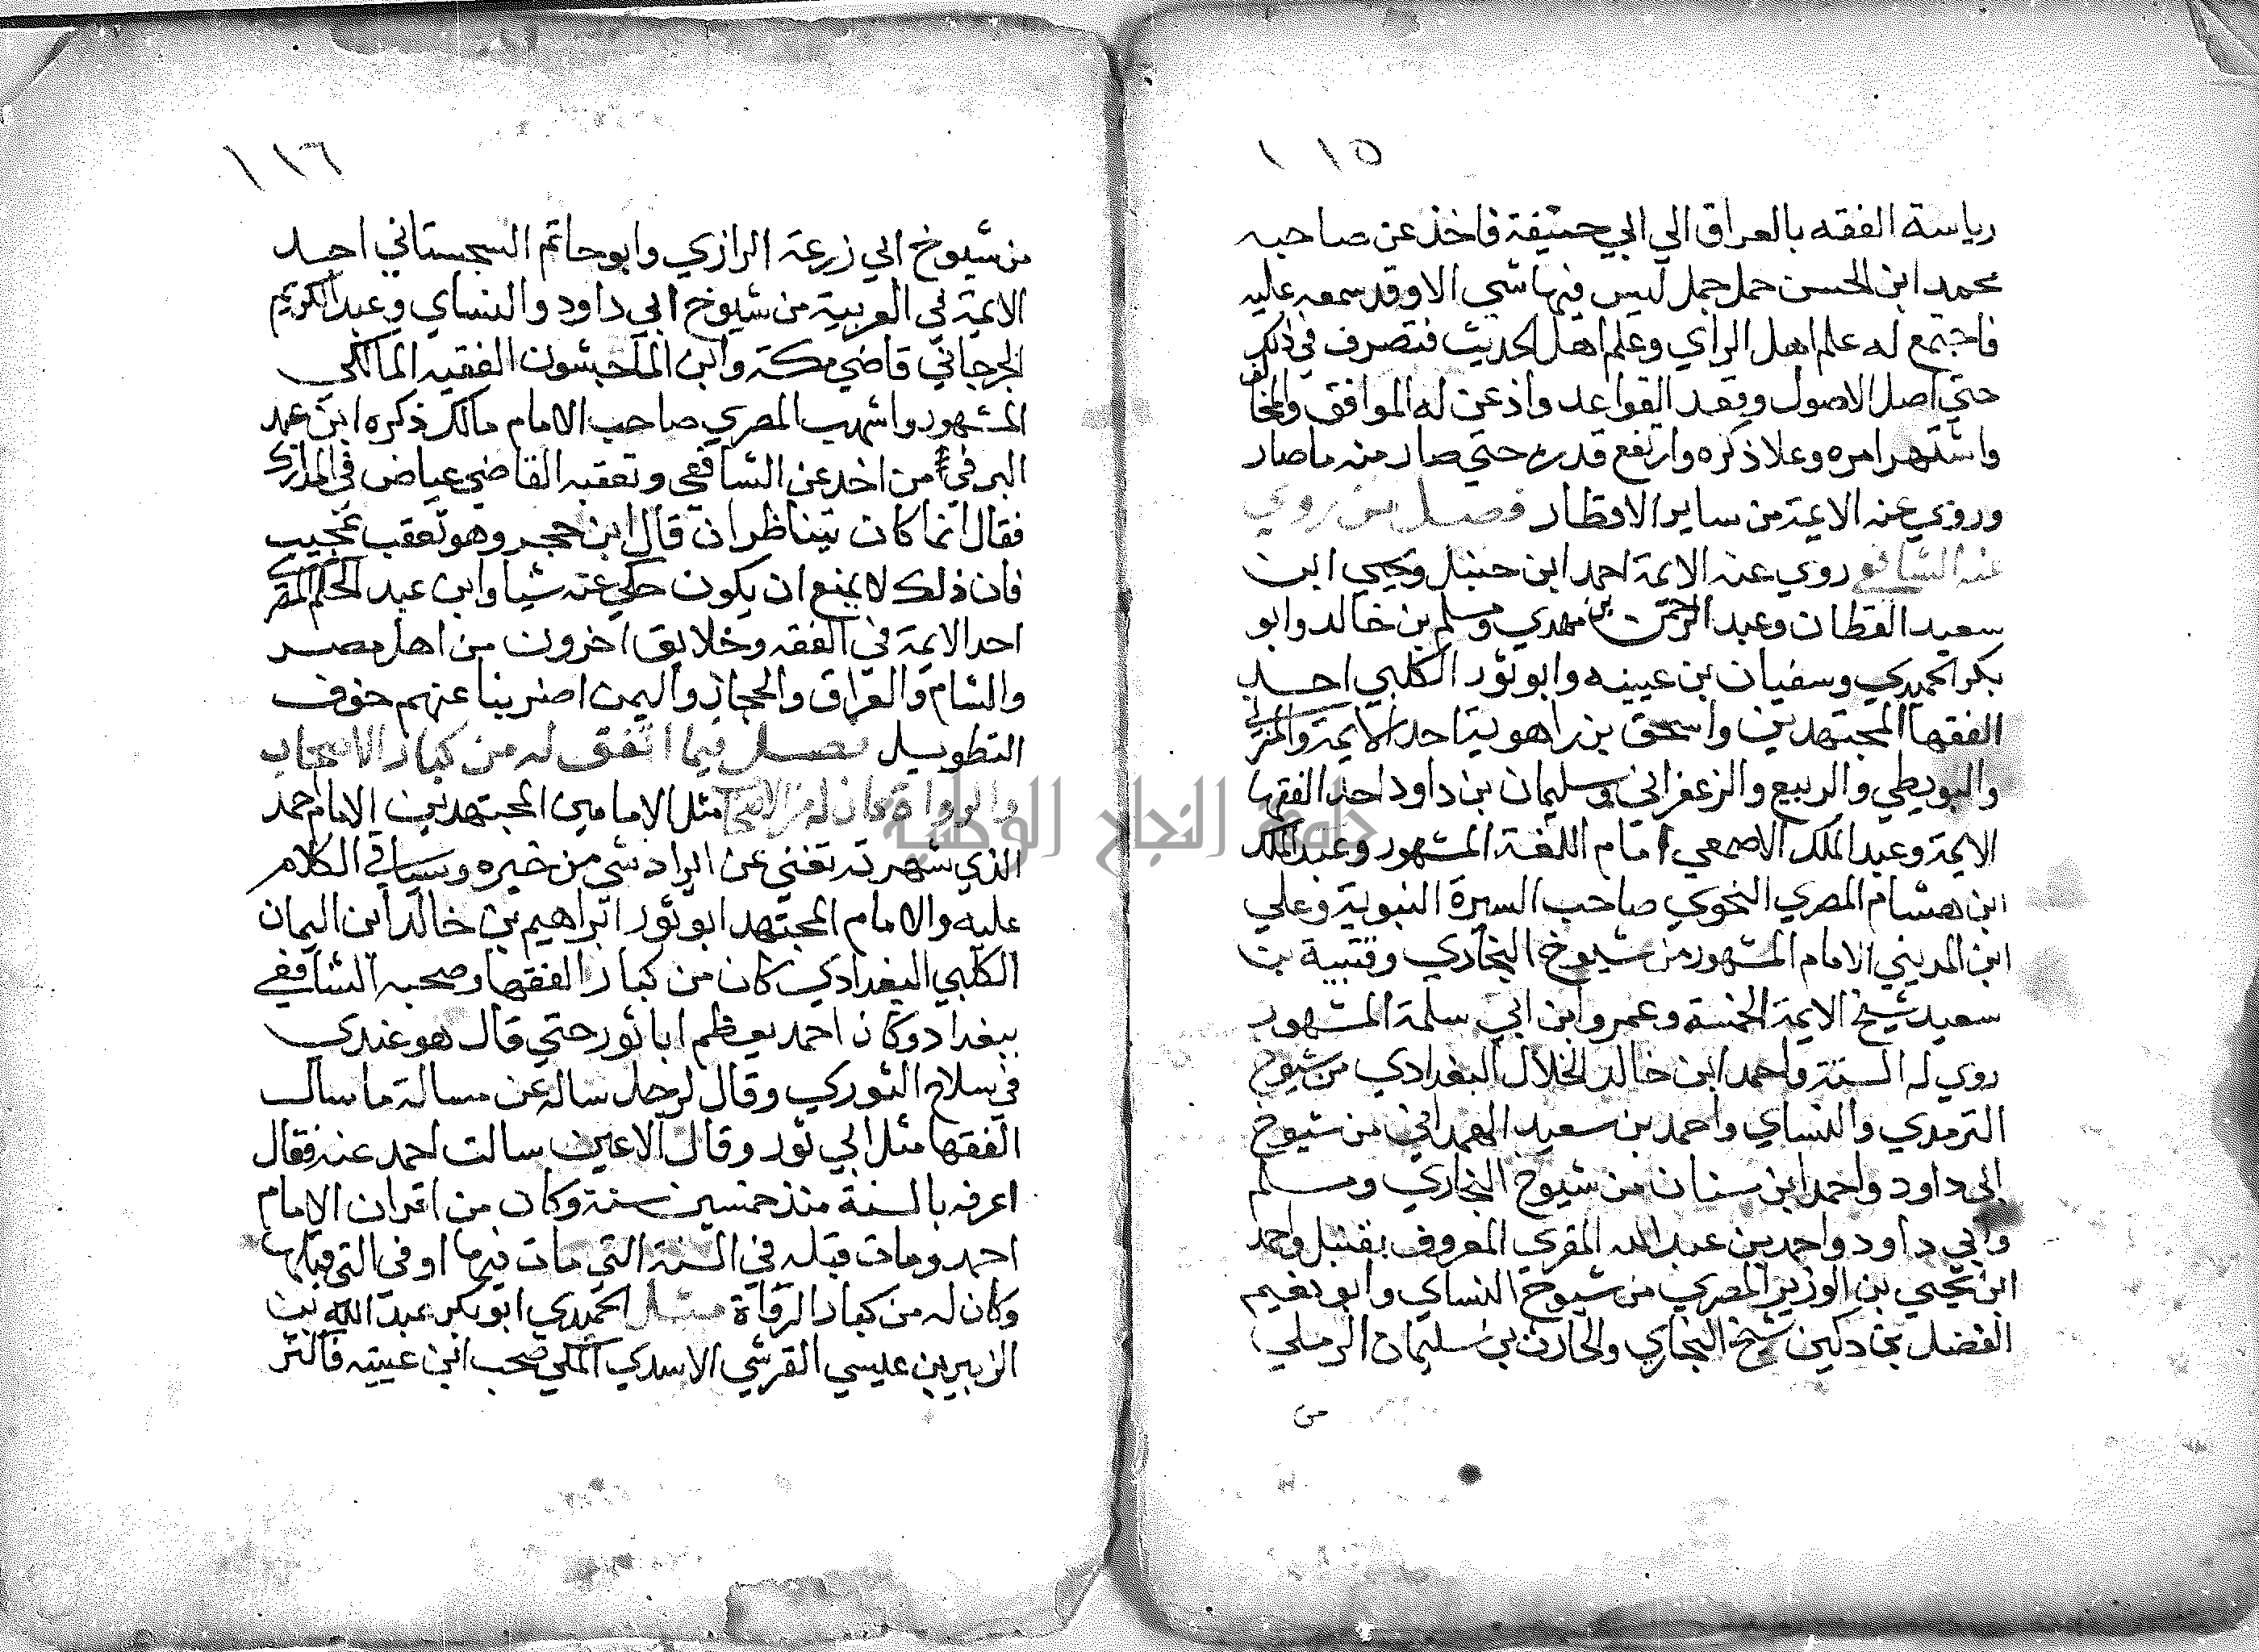 ١١٥
رياسة الفقه بالعراق الي ابي حنيفة فاخذ عن صاحبه
محمد ابن الحسن حمل جمل ليس فيها شي الا وقد سمعه عليه
فاجتمع له علم اهل الراي وعلم اهل الحديث فتصرف في ذلك
حتي اصل الاصول وقعد القواعد واذعن له الموافق والمخالف
واشتهر امره وعلا ذكره وارتفع قدره حتي صار منه ما صار
وروي عنه الايمة من ساير الاقطار فصل روي
عنه الشافعي روي عنه الايمة احمد ابن حنبل ويحيي ابن
سعيد القطان وعبد الرحمن بن مهدي ومسلم بن خالد وابو
بكر الحميدي وسفيان بن عيينه وابو ثور الكلبي احد
الفقها المجتهدين واسحق بن راهوية احد الايمة والمزني
والبويطي والربيع والزعفراني وسليمان بن داود احد الفقها
الايمة وعبد الملك الاصمعي امام اللغة المشهور وعبد الملك
ابن هشام المصري النحوي صاحب السيرة النبوية وعلي
ابن المديني الامام المشهور من شيوخ البخاري وقتيبة بن
سعيد شيخ الايمة الخمسة وعمرو ابن ابي سلمة المشهور
روي له الستة واحمد ابن خالد الخلال البغدادي من شيوخ
الترمدي والنساي واحمد بن سعيد الهمداني من شيوخ
ابي داود واحمد ابن سنان من شيوخ البخاري ومسلم
وابي داود واحمد بن عبد الله المقري المعروف بقنبل واحمد
ابن يحيي بن الوزير المصري من شيوخ النساي وابو نعيم
الفضل بن دكين شيخ البخاري والحارث بن سليمان الرملي
من
١١٦
من شيوخ ابي زرعة الرازي وابو حاتم السجستاني احد
الايمة في العربية من شيوخ ابي داود والنساي وعبد الكريم
الجرجاني قاضي مكة وابن الماجشون الفقيه المالكي
المشهور واشهب المصري صاحب الامام مالك ذكره ابن عبد
البر في من اخد عن الشافعي وتعقبه القاضي عياض في المدارك
فقال انما كان يتناظران قال ابن حجر وهو تعقب عجيب
فان ذلك لا يمنع ان يكون حكي عنه شيا وابن عبد الحكم المصري
احد الايمة في الفقه وخلايق اخرون من اهل مصر
والشام والعراق والحجاز واليمن اضربنا عنهم خوف
التطويل فصل فيما اتفق له من كبار الاصحاب
والرواة فكان له من الاصحاب مثل الامامين المجتهدين الامام احمد
الذي شهرته تغني عن ايراد شي من خبره وسياتي الكلام
عليه والامام المجتهد ابو ثور ابراهيم بن خالد ابن اليمان
الكلبي البغدادي كان من كبار الفقها وصحبه الشافعي
ببغداد وكان احمد يعظم ابا ثور حتي قال هو عندي
في سلاخ الثوري وقال لرجل ساله عن مسالة ما سال
الفقها مثل ابي ثور وقال الاعين سالت احمد عنه فقال
اعرفه بالسنة منذ خمسين سنة وكان من اقران الامام
احمد ومات قبله في السنة التي مات فيها او في التي قبلها
وكان له من كبار الرواة مثل الحميدي ابو بكر عبد الله بن
الزبير بن عيسي القرشي الاسدي المكي صحب ابن عيينه فاكثر
جامعة النجاح الوطنية